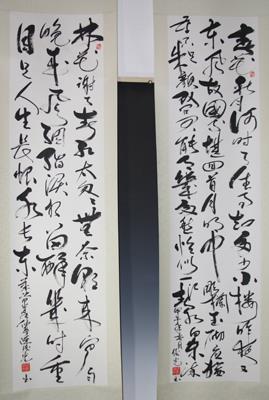 春花秋月何时了往事知多少小楼昨夜又
东风故国不堪回首月明中雕阑玉砌应犹
在只是朱颜改问君能有几多愁恰似一江春水向东流
林花谢了春红太匆匆无奈朝来寒雨
晚来风胭脂泪相留醉几时重
自是人生长恨水长东